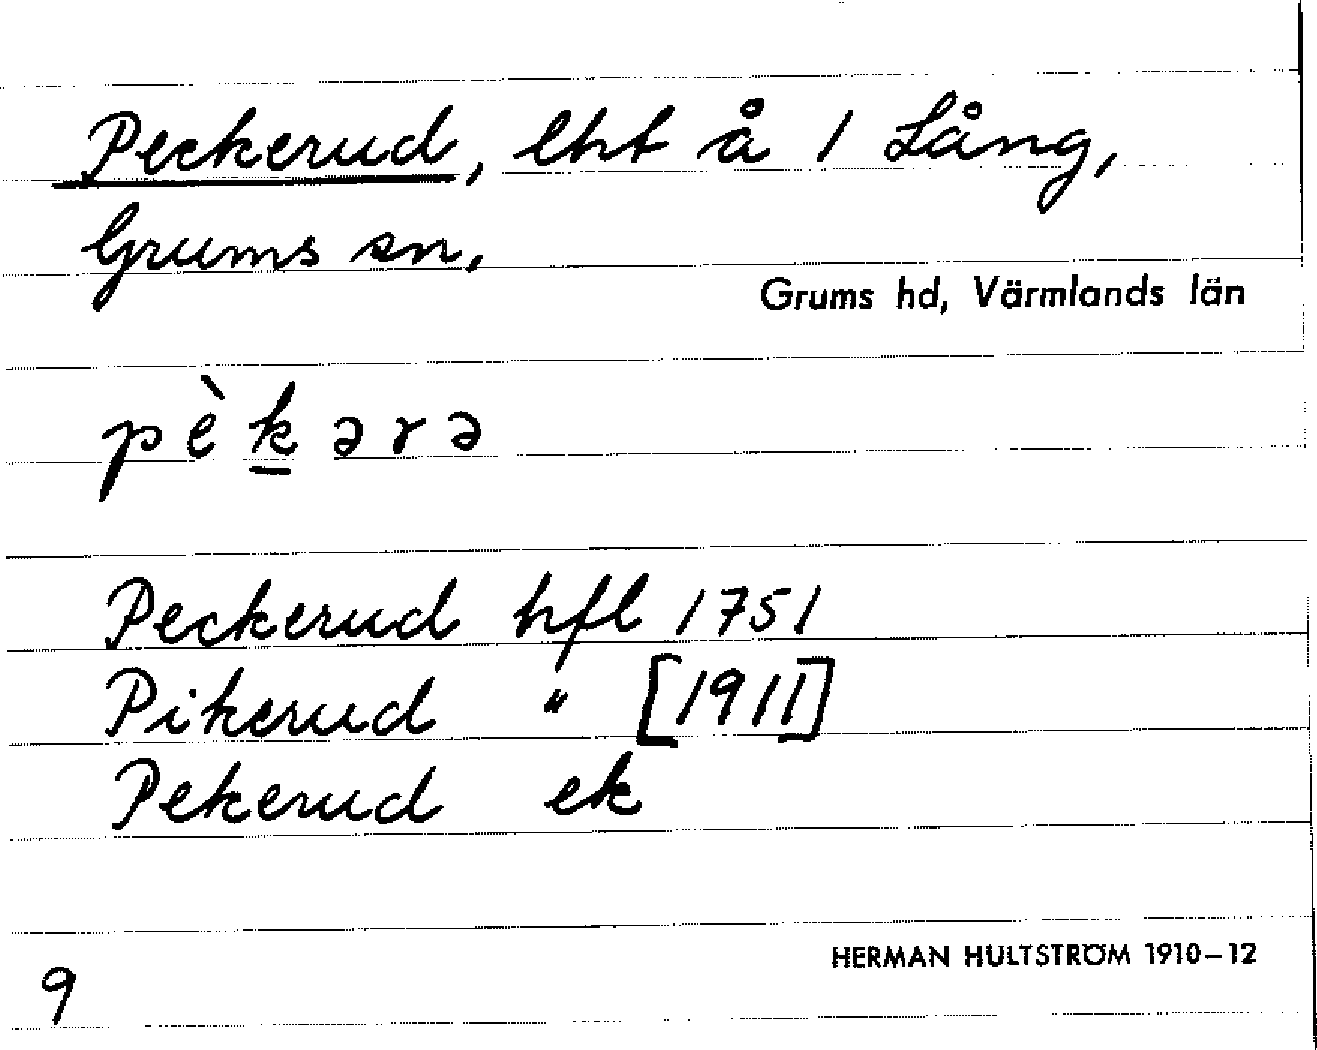 Peckerud, lht å 1 Lång,
Grums sn,
Grums hd, Värmlands län
pèk̲ərə
Peckerud hfl 1751
Pikerud " [1911]
Pekerud ek
HERMAN HULTSTRÖM 1910–12
9